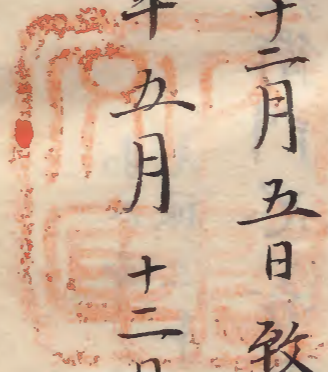 十二月五日致
年五月十二日